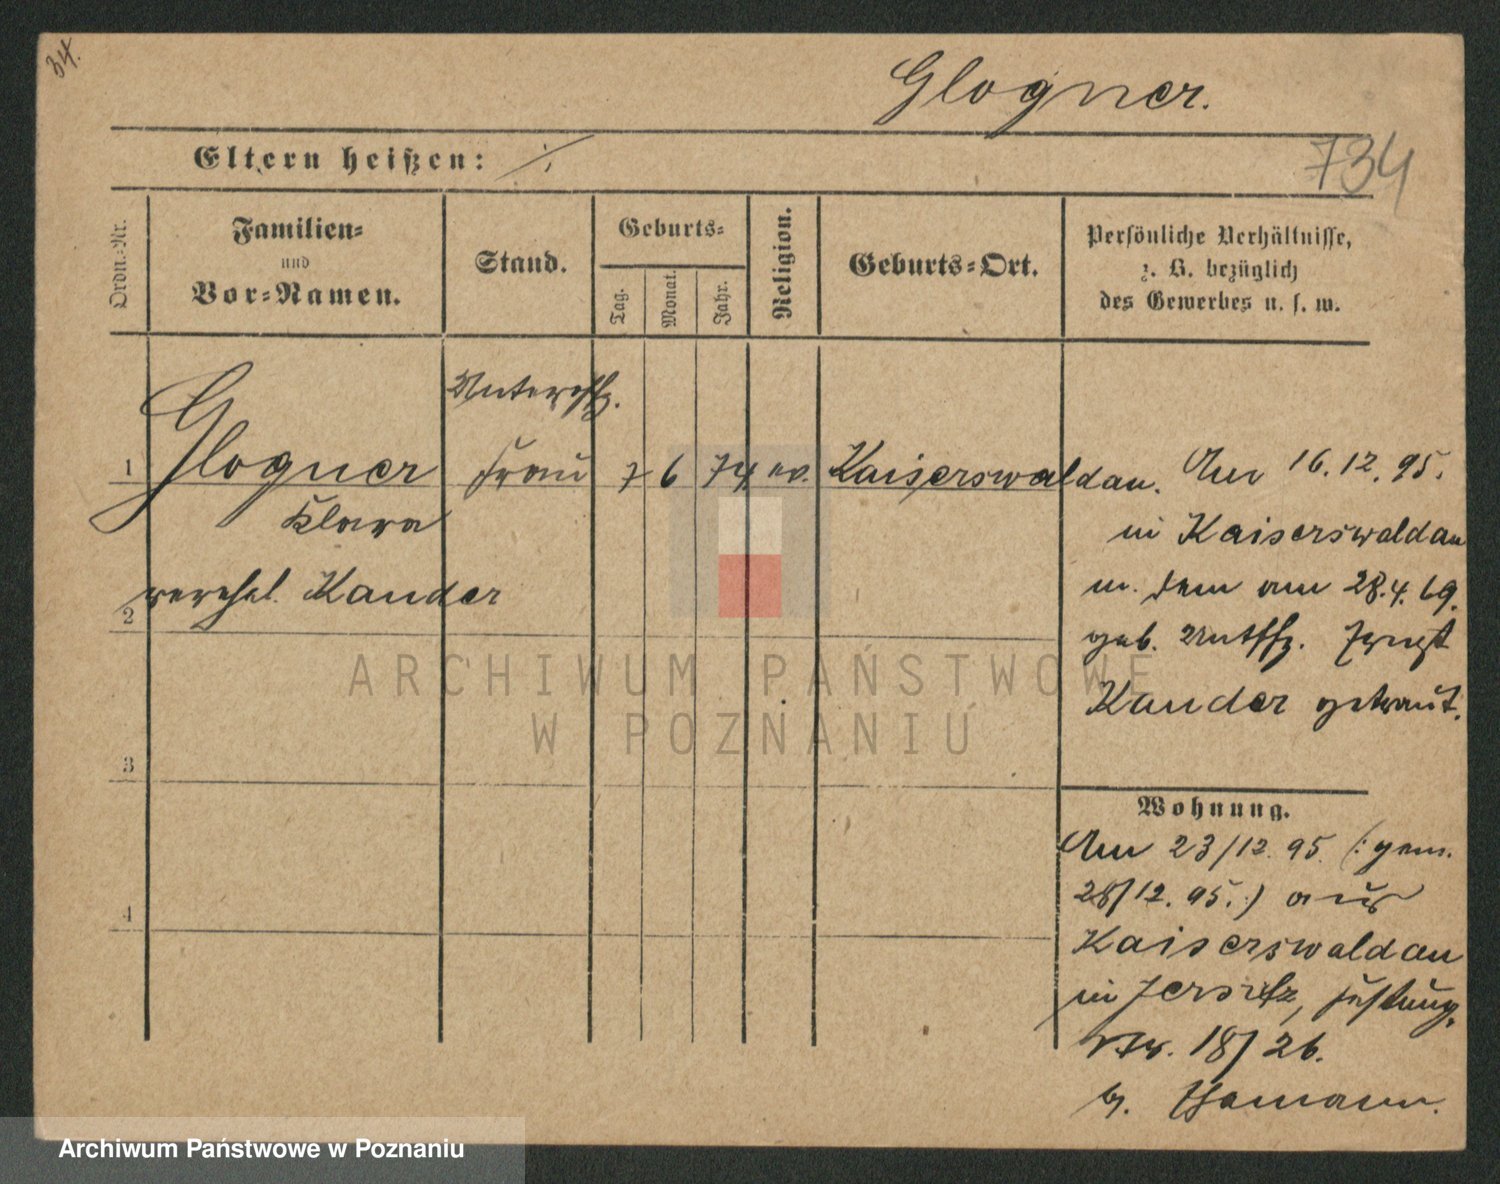 34.
Glogner.
734
Eltern heißen: ∕.
Ordn.-Nr.
Familien-
und
Vor-Namen.
Stand.
Geburts-
Tag.
Monat.
Jahr.
Religion.
Geburts-Ort.
Persönliche Verhältnisse,
z. B. bezüglich
des Gewerbes u. s. w.
1
Glogner
Klara
verehel. Kander
Unteroffz.
Frau
7 6 74 ev. Kaiserswaldau.
Am 16.12.95.
in Kaiserswaldau
m. dem am 28.4.69.
geb. Untffz. Ernst
Kander getraut.
2
3
4
Wohnung.
Am 23/12.95. (: gem.
28/12.95.:) aus
Kaiserswaldau
in Jersitz, Festung,
18/26.
b.
ARCHIWUM PAŃSTWOWE
W POZNANIU
Archiwum Państwowe w Poznaniu